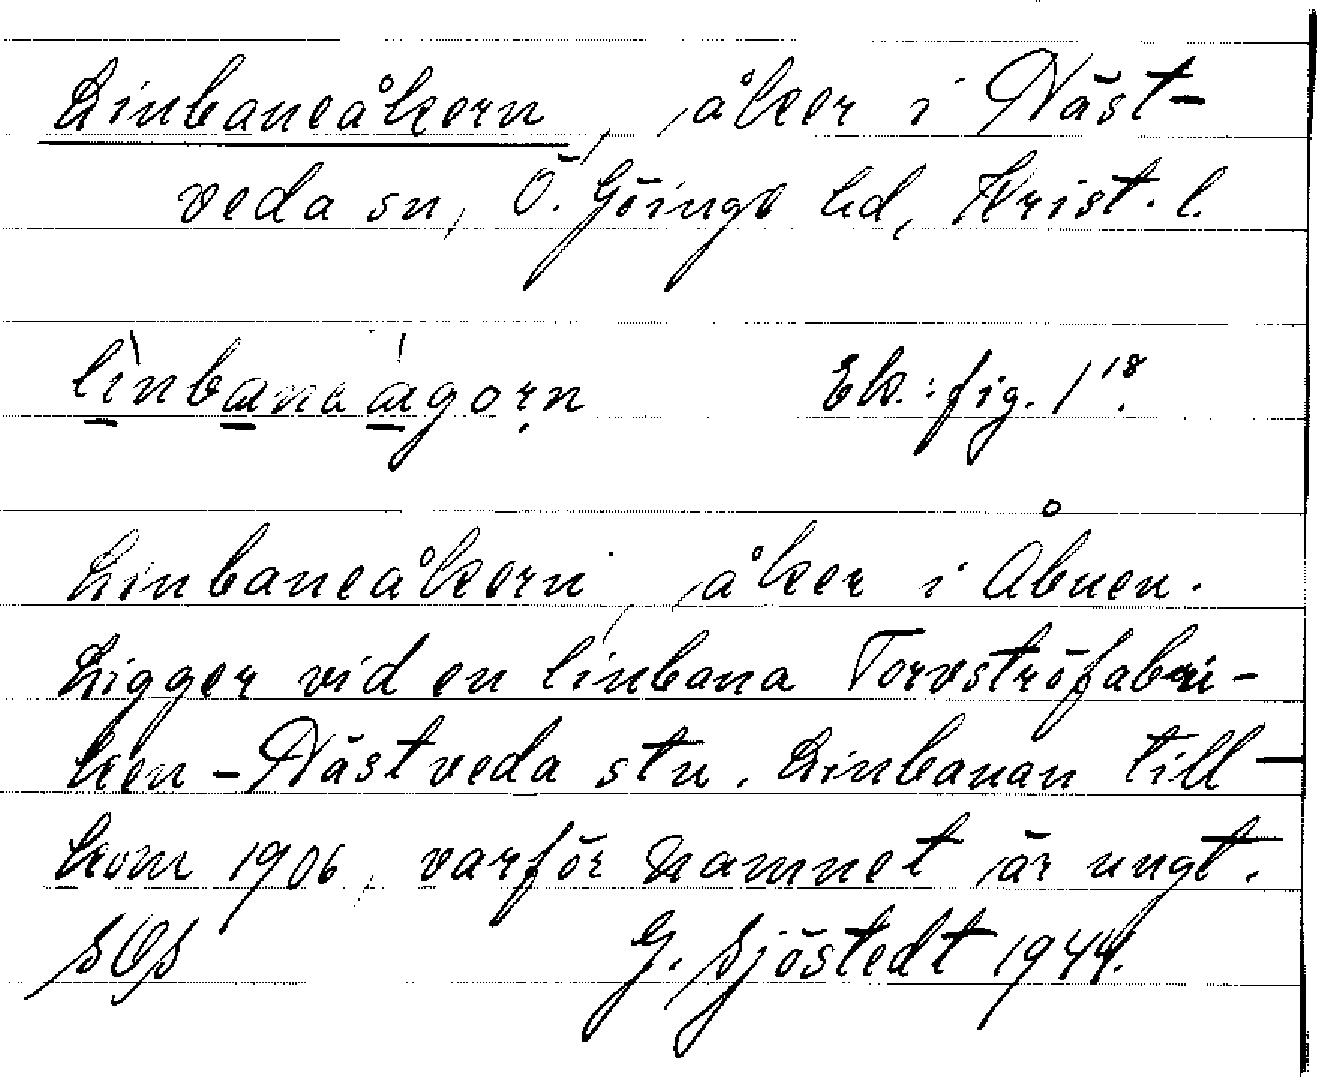 Linbaneåkern, åker i Näst-
veda sn, Ö. Göinge hd, Krist. l.
lìnbanaágorn Ek.: fig. 1¹⁸.
Linbaneåkern, åker i Åbuen.
Ligger vid en linbana Torvströfabri-
ken - Nästveda stn. Linbanan till-
kom 1906, varför namnet är ungt.
G. Sjöstedt 1944.